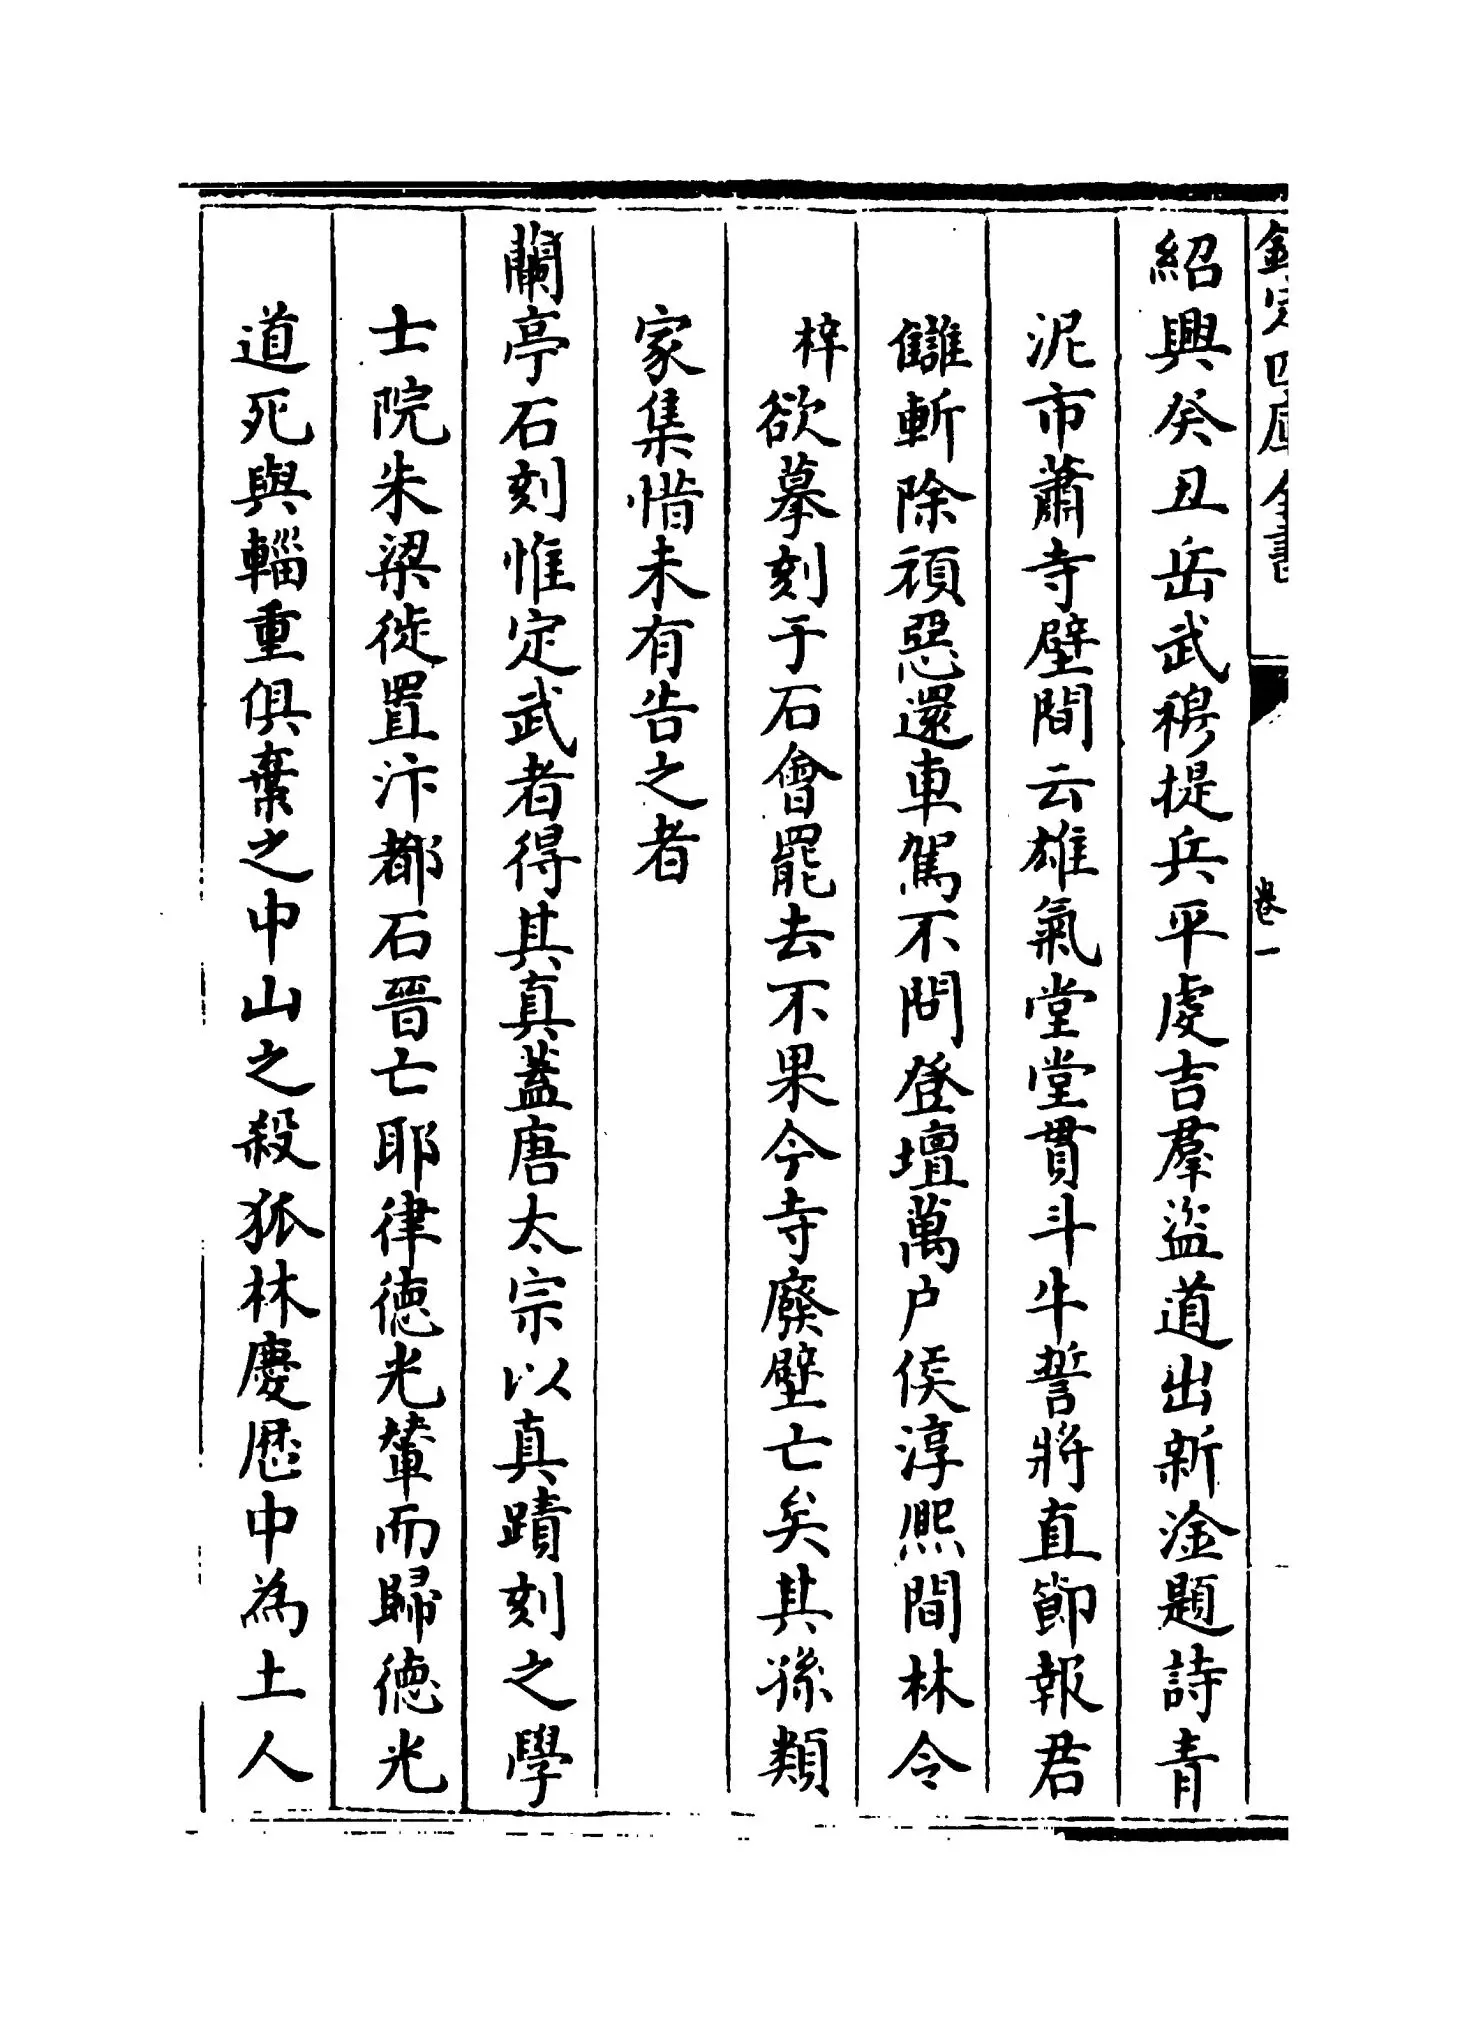 欽定四庫全書
卷一
紹興癸丑岳武穆提兵平䖍吉羣盜道出新淦題詩青
泥市蕭寺壁間云雄氣堂堂貫斗牛誓將直節報君
讎斬除頑惡還車駕不問登壇萬户侯淳熙間林令
梓欲摹刻于石會罷去不果今寺廢壁亡矣其孫類
家集惜未有告之者
蘭亭石刻惟定武者得其真蓋唐太宗以真蹟刻之學
士院朱梁徙置汴都石晉亡耶律徳光輦而歸徳光
道死與輜重俱棄之中山之殺狐林慶厯中為土人